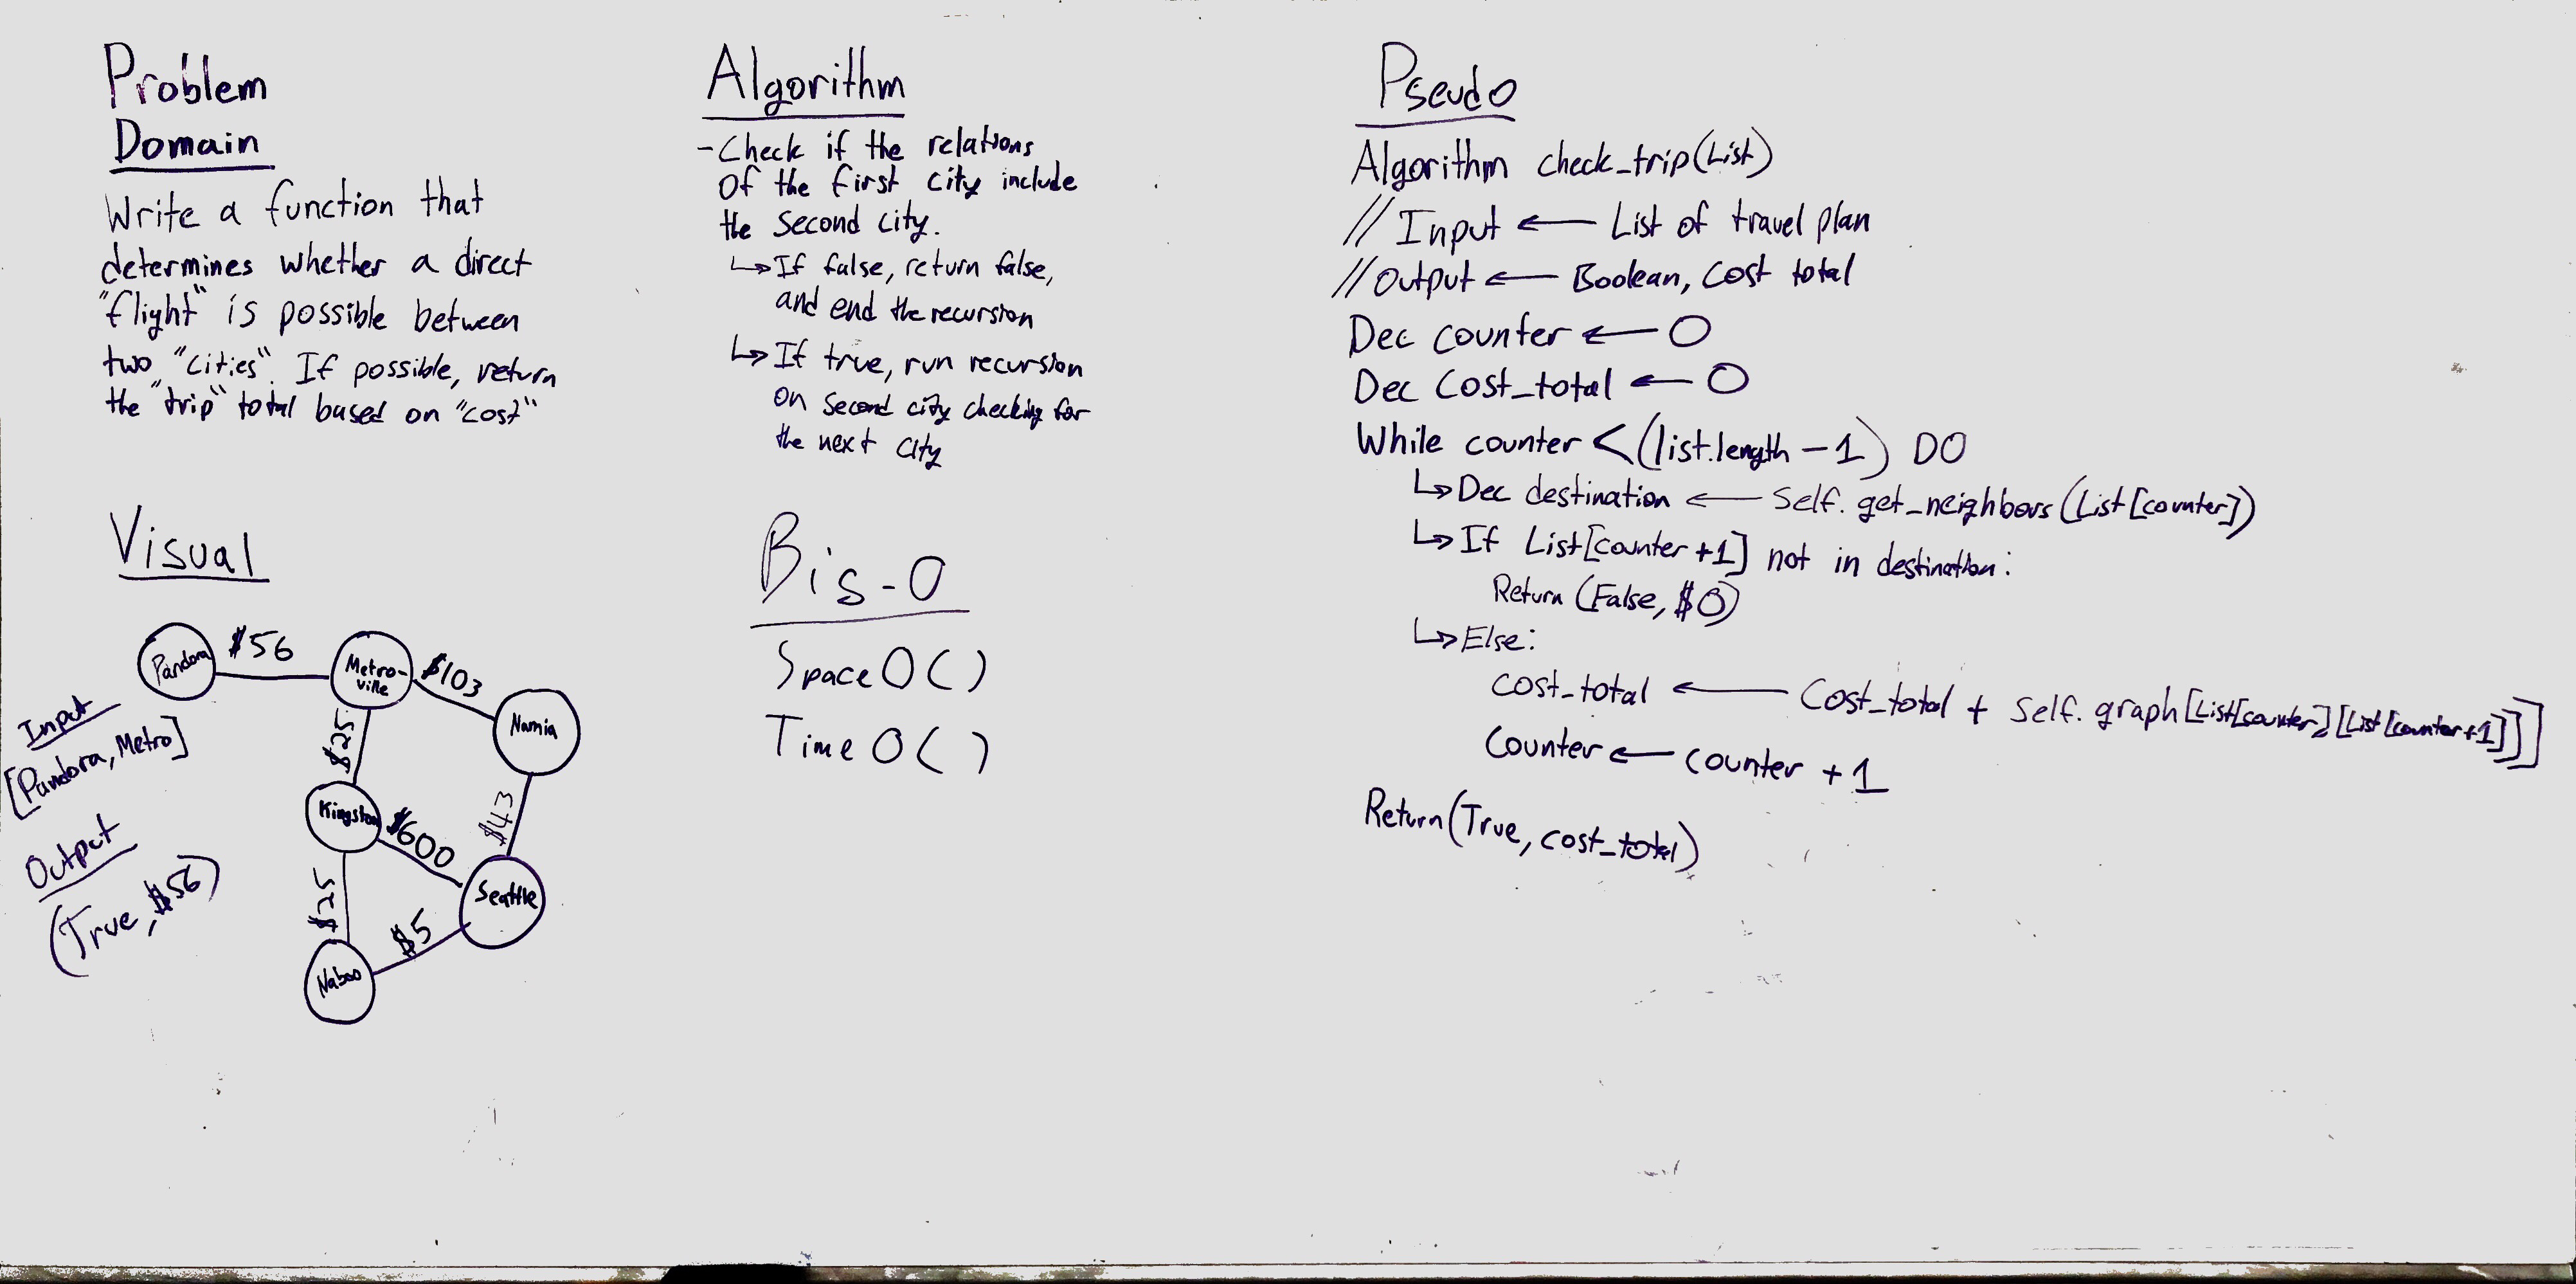 Problem
Domain
Write a function that
determines whether a direct
"flight" is possible between
two "cities". If possible, return
the "trip" total based on "cost"
Visual
Pandora
$56
Metro-
ville
$103
Narnia
$25
Kingston
$600
$43
Seattle
$25
$5
Naboo
Input
[Pandora, Metro]
Output
(True, $56)
Algorithm
- Check if the relations
of the first city include
the second city.
↳ If false, return false,
and end the recursion
↳ If true, run recursion
on second city checking for
the next city
Big-O
Space O( )
Time O( )
Pseudo
Algorithm check_trip(List)
// Input ← List of travel plan
// Output ← Boolean, cost total
Dec counter ← 0
Dec cost_total ← 0
While counter < (list.length - 1) DO
↳ Dec destination ← Self.get_neighbors(List[counter])
↳ If List[counter+1] not in destination:
Return (False, $0)
↳ Else:
cost_total ← cost_total + Self.graph[List[counter]][List[counter+1]]]
Counter ← counter + 1
Return(True, cost_total)